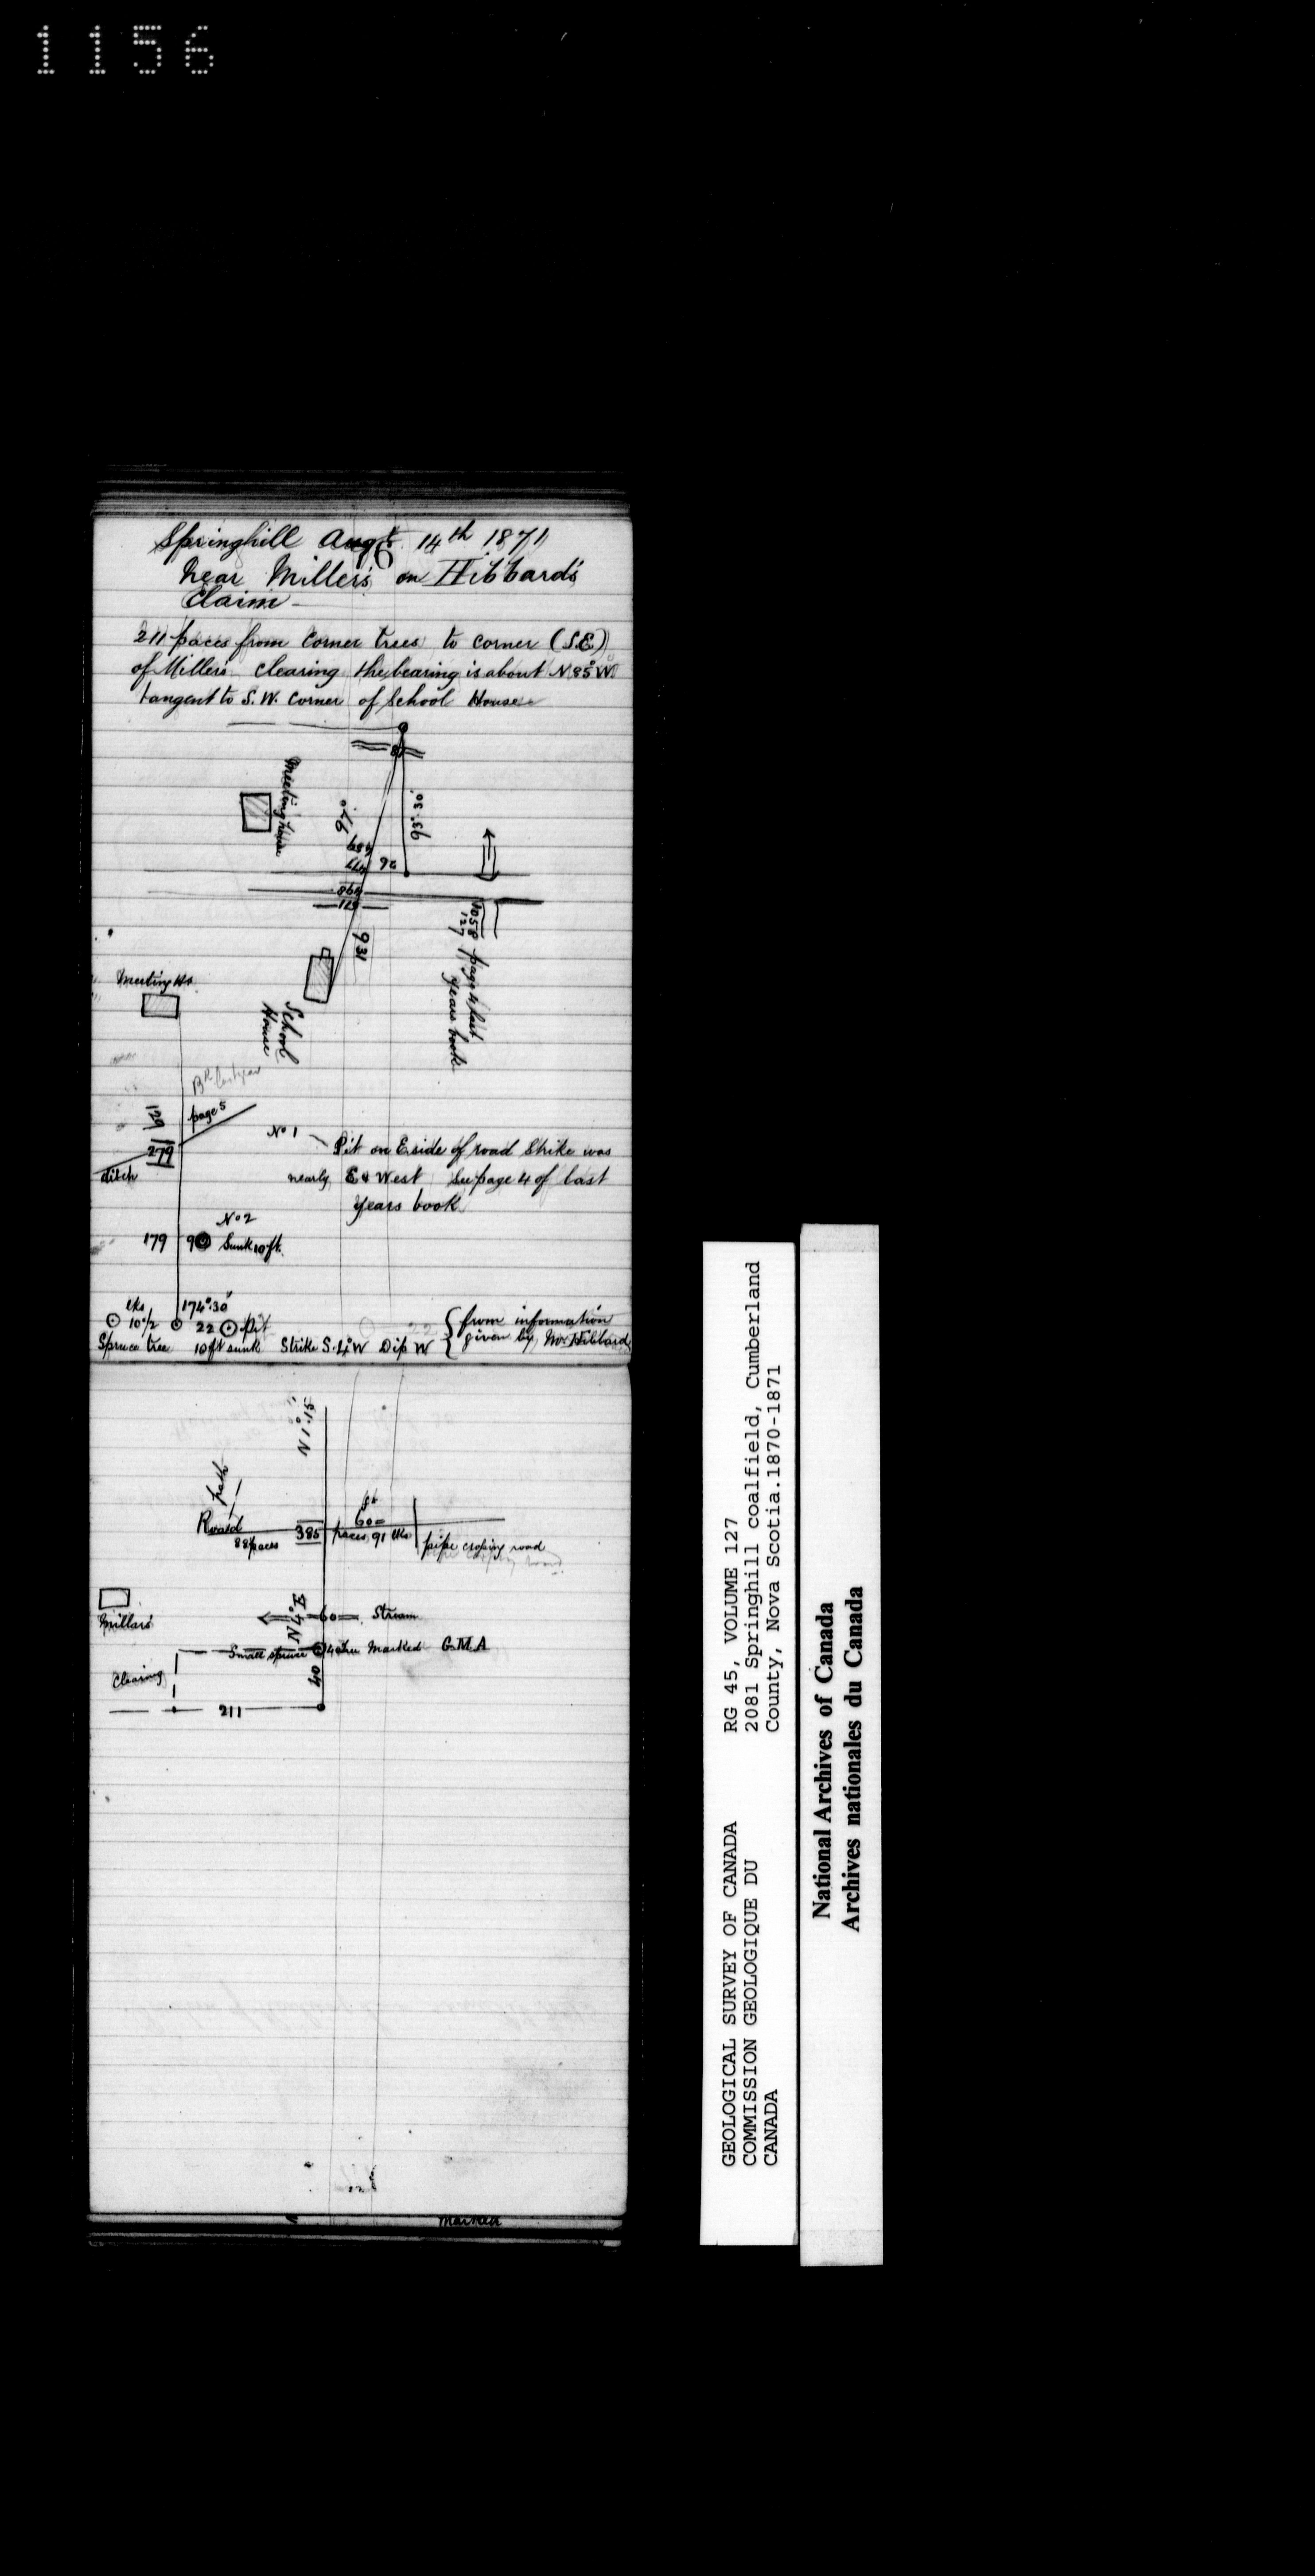 1156
Springhill Augt. 14th 1871
76
Near Miller's on Hibbard's
Claim
211 paces from corner trees to corner (S.E)
of Miller's clearing the bearing is about N 85° W
tangent to S. W. Corner of School House
Meeting house
93°.30'
92
864
931
1058
127 page 4 last
years book
School
House
Meeting Ho.
page 5
129
279
ditch
No 1
Pit on E side of road Strike was
nearly E & West See page 4 of last
years book
No 2
179 9 Sunk 10 ft.
lks 174°.30'
10 1/2 22 Pit
Spruce tree 10 ft sunk Strike S. 4° W Dip W
from information
given by Mr Hibbard
N 1°.15'
path
Road
88 paces
385
60
paces 91 lks
pipe crossing road
Millars
60 Stream
Small spruce tree Marked G.M.A
Clearing
40
211
Marked
GEOLOGICAL SURVEY OF CANADA RG 45, VOLUME 127
COMMISSION GEOLOGIQUE DU 2081 Springhill coalfield, Cumberland
CANADA County, Nova Scotia.1870-1871
National Archives of Canada
Archives nationales du Canada